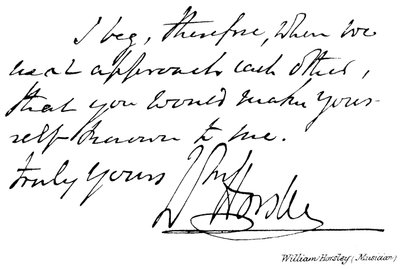 I beg, therefore, when we
next approach each other,
that you would make your-
self known to me.
truly yours
Wm Horsley
William Horsley (Musician)